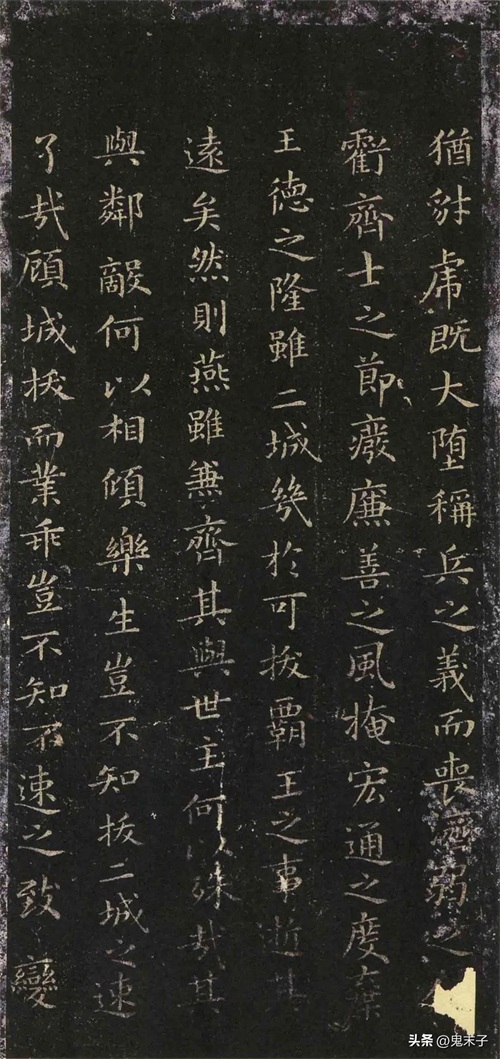 猶豺虎既大堕稱兵之義而喪濟弱之
虧齊士之節廢廉善之風掩宏通之度棄
王德之隆雖二城幾於可拔霸王之事逝其
遠矣然則燕雖兼齊其與世主何以殊哉其
與鄰敵何以相傾樂生豈不知拔二城之速
了哉顧城拔而業乖豈不知不速之致變
头条 @鬼末子